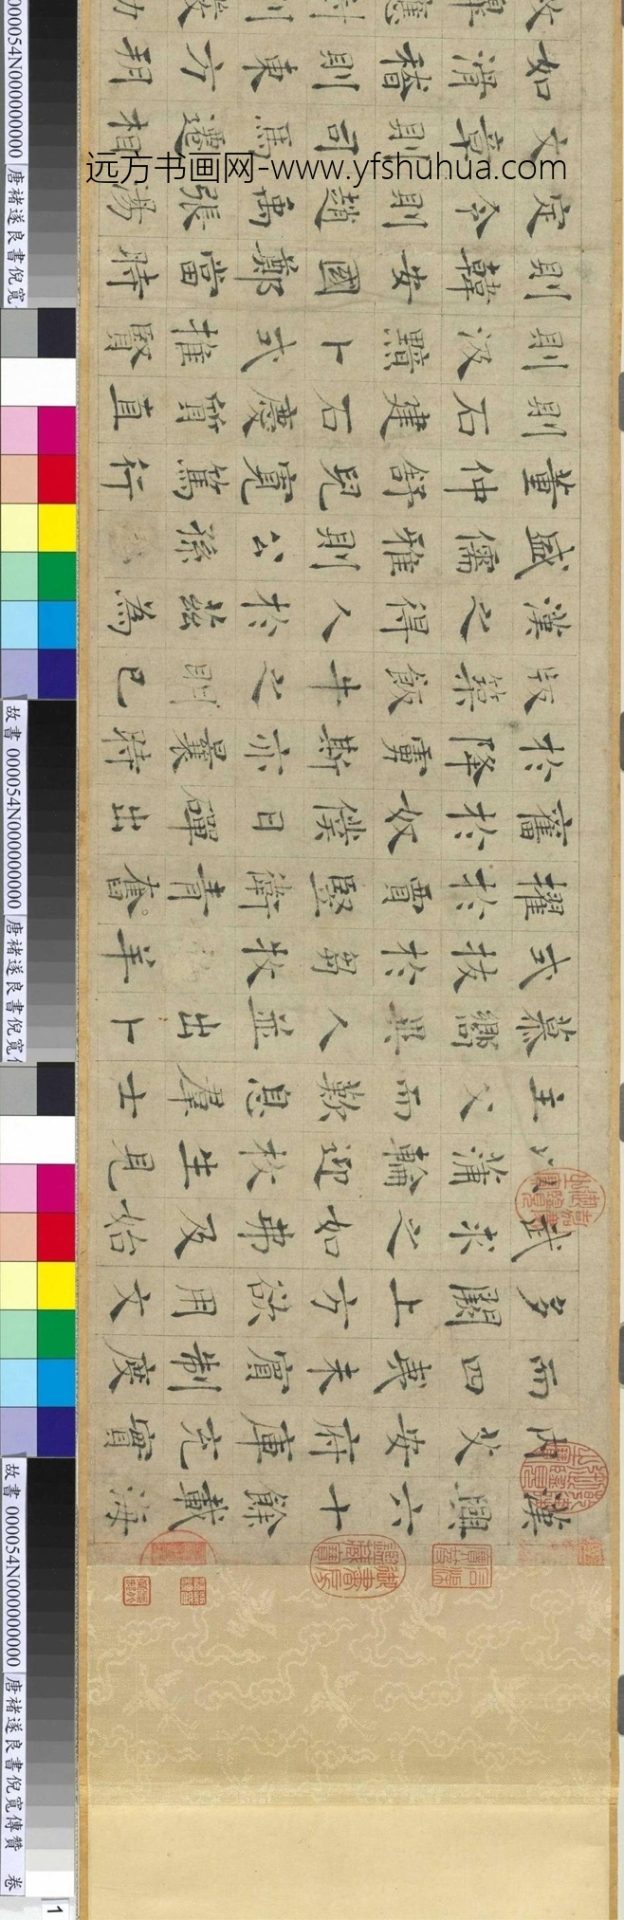 漢興六十餘載海
內艾安府庫充實
而四夷未賓制度
多闕上方欲用文
武求之如弗及始
以蒲輪迎枚生見
主父而歎息群士
慕嚮異人並出卜
式拔於芻牧羊
擢於賈豎衛青奮
奮於奴僕日磾出
於降虜斯亦曩時
版築飯牛之朋已
漢之得人於茲為
盛儒雅則公孫
董仲舒兒寬篤行
則石建石慶質直
則汲黯卜式推賢
則韓安國鄭當時
定令則趙禹張湯
文章則司馬遷相
如滑稽則東方朔
远方书画网-www.yfshuhua.com
000054N000000000 唐褚遂良書倪寬
故書 000054N000000000 唐褚遂良書倪寬
故書 000054N000000000 唐褚遂良書倪寬傳贊 卷
1